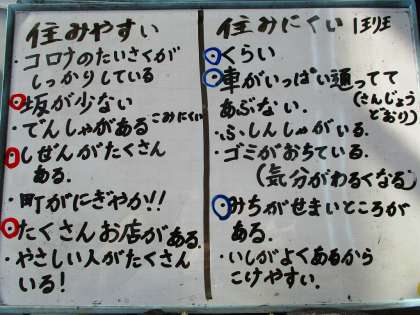 住みやすい
・コロナのたいさくが
しっかりしている
・坂が少ない
・でんしゃがある こみにくい
・しぜんがたくさん
ある.
・町がにぎやか!!
・たくさんお店がある.
・やさしい人がたくさん
いる!
住みにくい 1班
・くらい
・車がいっぱい通ってて
あぶない. (さんじょう
どおり)
・ふしんしゃがいる.
・ゴミがおちている.
(気分がわるくなる)
・みちがせまいところが
ある.
・いしがよくあるから
こけやすい.